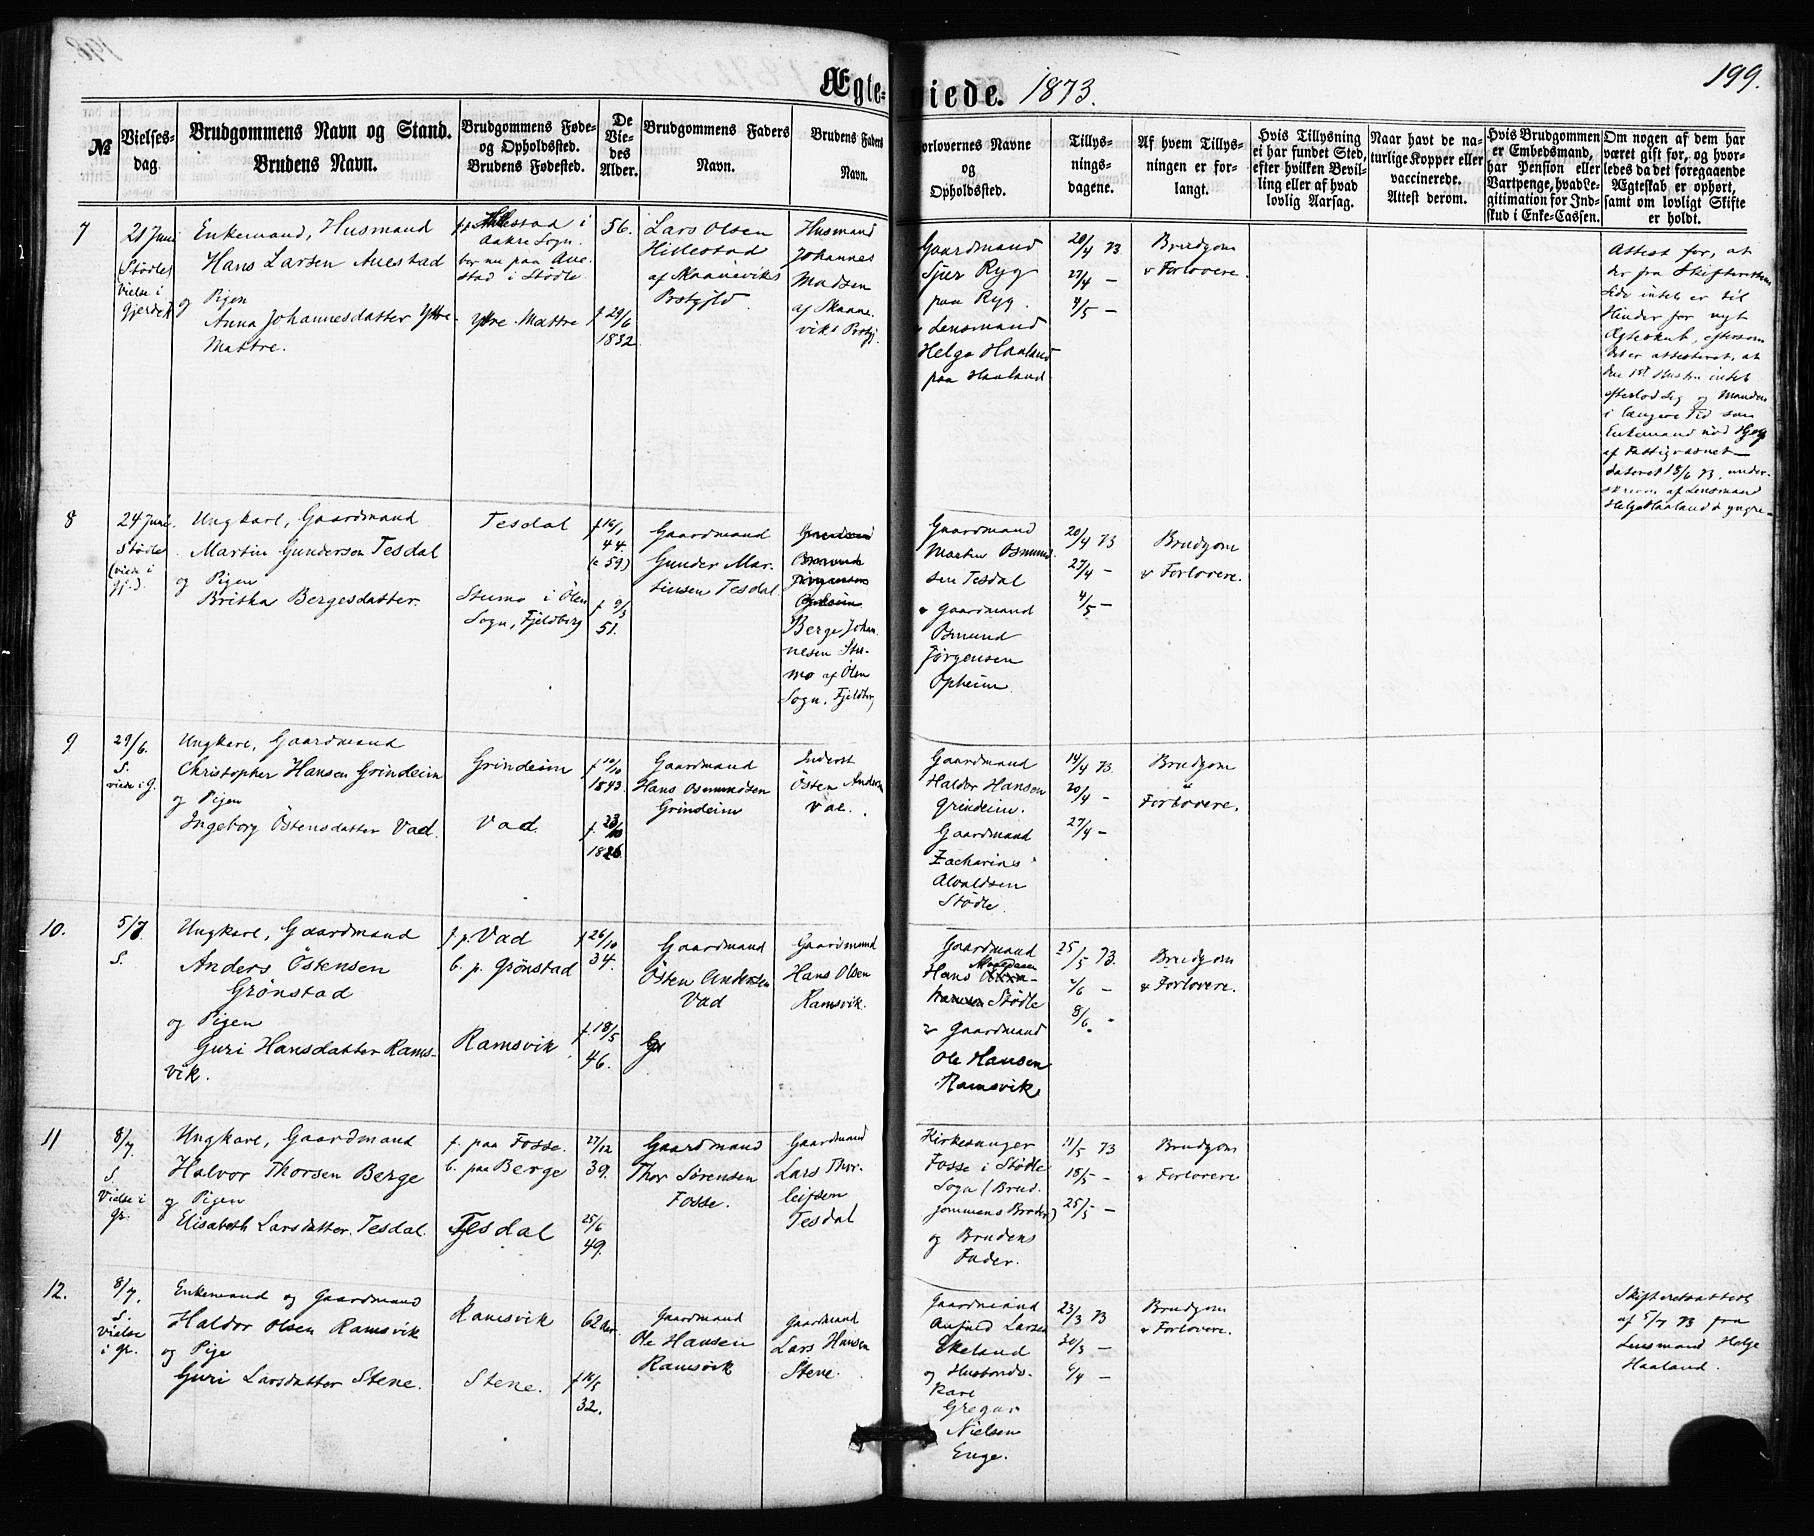 Ægte-
viede. 1873.
199.
№
Vielses-
dag.
Brudgommens Navn og Stand.
Brudens Navn.
Brudgommens Føde-
og Opholdssted.
Brudens Fødested.
De
Vie-
des
Alder.
Brudgommens Faders
Navn.
Brudens Faders
Navn.
Forlovernes Navne
og
Opholdssted.
Tillys-
nings-
dagene.
Af hvem Tillys-
ningen er for-
langt.
Hvis Tillysning
ei har fundet Sted,
efter hvilken Bevil-
ling eller af hvad
lovlig Aarsag.
Naar havt de na-
turlige Kopper eller
vaccinerede.
Attest derom.
Hvis Brudgommen
er Embedsmand,
har Pension eller
Vartpenge, hvad Le-
gitimation for Ind-
skud i Enke-Cassen.
Om nogen af dem har
været gift før, og hvor-
ledes da det foregaaende
Ægteskab er ophørt,
samt om lovligt Skifte
er holdt.
7
21 Juni
Stødle
Vielse i
Gjerdet
Enkemand, Husmand
Hans Larsen Auestad
og Pigen
Anna Johannesdatter Ytre-
Mattre.
Hillestad i
Aakre Sogn.
bor nu paa Aue-
stad i Stødle
Ytre-Mattre
56.
f 29/6
1832
Lars Olsen
Hillestad
af Skaaneviks
Prstgjld
Husmand
Johannes
Madsen
af Skaane-
viks Prstgj.
Gaardmand
Sjur Ryg
paa Ryg.
& Lensmand
Helge Haaland
paa Haaland.
20/4 73
27/4 –
4/5 –
Brudgom
& Forlovere.
Attest for, at
der fra Skifterettens
Side intet er til
Hinder for nyt
Ægteskab, eftersom
det er attesteret, at
den 1st Hustru intet
efterlod sig og Manden
i længere Tid som
Enkemand nød Hjælp
af Fattigvæsnet –
dateret 18/6 73, under-
skreven af Lensmand
Helge Haaland d yngre –
8
24 Juni
Stødle
(viede i
Gj.)
Ungkarl, Gaardmand
Martin Gundersen Tesdal
og Pigen
Britha Bergesdatter.
Tesdal
Stumo i Ølen
Sogn, Fjeldberg
f 16/1
44.
(c 59)
f 9/3
51.
Gaardmand
Gunder Mar-
tinsen Tesdal
Gaardmand
Osmund
Jørgensen
Opheim
Berge Johan-
nesen Stu-
mo af Ølen
Sogn, Fjeldberg
Gaardmand
Morten Osmund-
sen Tesdal
& Gaardmand
Osmund
Jørgensen
Opheim.
20/4 73
27/4 –
4/5 –
Brudgom
& Forlovere.
9
29/6.
S.
viede i G.
Ungkarl, Gaardmand
Christopher Hansen Grindeim
og Pigen
Ingeborg Østensdatter Vad.
Grindeim
Vad.
f 10/10
1843.
f. 23/10
1826.
Gaardmand
Hans Osmundsen
Grindeim
Inderst
Østen Anders
Vae.
Gaardmand
Haldor Hansen
Grindeim.
Gaardmand
Zacharias
Alvaldsen
Stødle.
14/4 73.
20/4 –
27/4 –
Brudgom
&
Forlovere.
10.
5/7.
S.
Ungkarl, Gaardmand
Anders Østensen
Grønstad
og Pigen
Guri Hansdatter Rams-
vik.
f. p. Vad
b. p. Grønstad
Ramsvik
f 26/10
34.
f. 18/5
46.
Gaardmand
Østen Andersen
Vad
Gaardmund
Hans Olsen
Ramsvik.
Gaardmand
Hans
Stødle
& Gaardmand
Ole Hansen
Ramsvik
25/5 73.
2/6 –
8/6 –
Brudgom
& Forlovere.
11
8/7.
S.
Vielse i
Gr.
Ungkarl, Gaardmand
Halvor Thorsen Berge
og Pigen
Elisabeth Larsdatter Tesdal.
f. paa Fosse.
b. paa Berge
Tesdal
27/12
39.
25/6
49.
Gaardmand
Thor Sørensen
Fosse.
Gaardmand
Lars Thor-
leifsen
Tesdal
Kirkesanger
Fosse i Stødle
Sogn (Brud-
gommens Broder)
og Brudens
Fader.
11/5 73
18/5 –
25/5 –
Brudgom
& Forlovere
12.
8/7.
S.
Vielse
i Gr.
Enkemand og Gaardmand
Haldor Olsen Ramsvik
og Pige
Guri Larsdatter Stene.
Ramsvik
Stene.
62 Aar.
f 16/5
32.
Gaardmand
Ole Hansen
Ramsvik
Gaardmand
Lars Hansen
Stene.
Gaardmand
Larsen
Ekeland
og Husbonds-
karl
Gregar
Nielsen
Enge.
23/3 73
30/3 –
6/4 –
Brudgom
& Forlovere.
Skifteretsattest
af 5/7 73 fra
Lensmand Helge
Haaland.